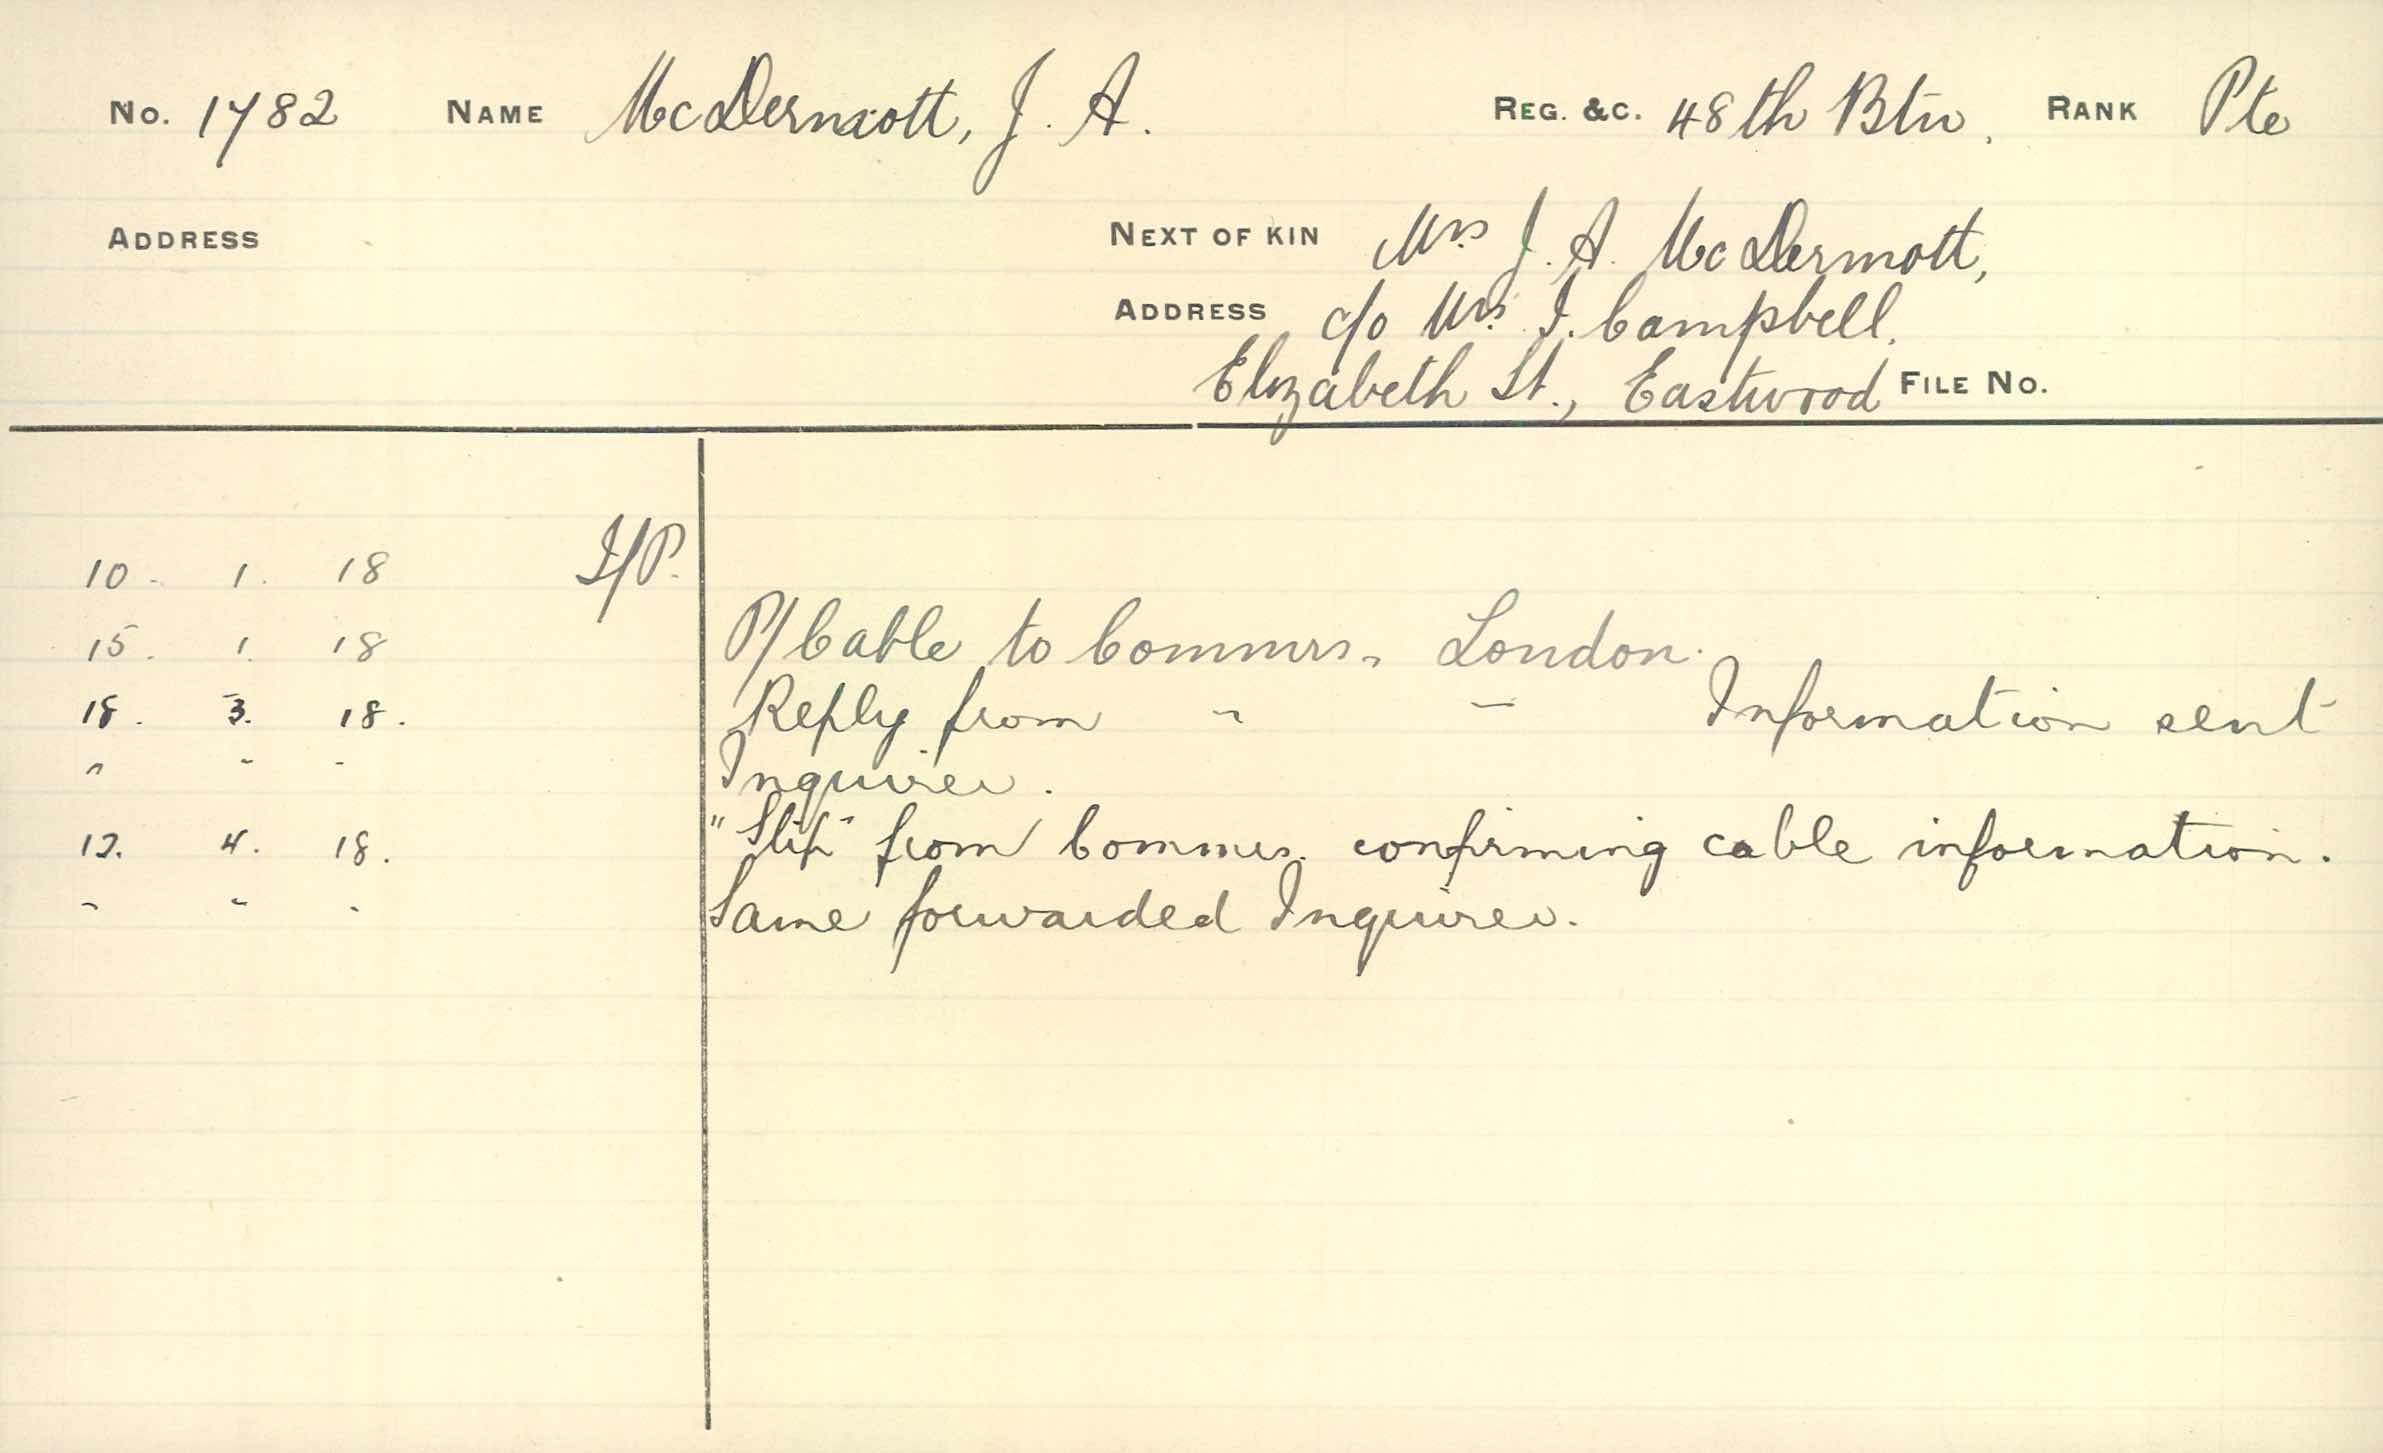 No. 1782 NAME McDermott, J. A. REG. &C. 48th Btn. RANK Pte
ADDRESS NEXT OF KIN Mrs J. A. McDermott,
ADDRESS c/o Mrs. I. Campbell,
Elizabeth St., Eastwood FILE No.
10. 1. 18 I/P.
15. 1. 18 P/Cable to Commrs. London.
18. 3. 18. Reply from " " Information sent
" " " Inquirer.
12. 4. 18. "Slip" from Commrs. confirming cable information.
" " " Same forwarded Inquirer.